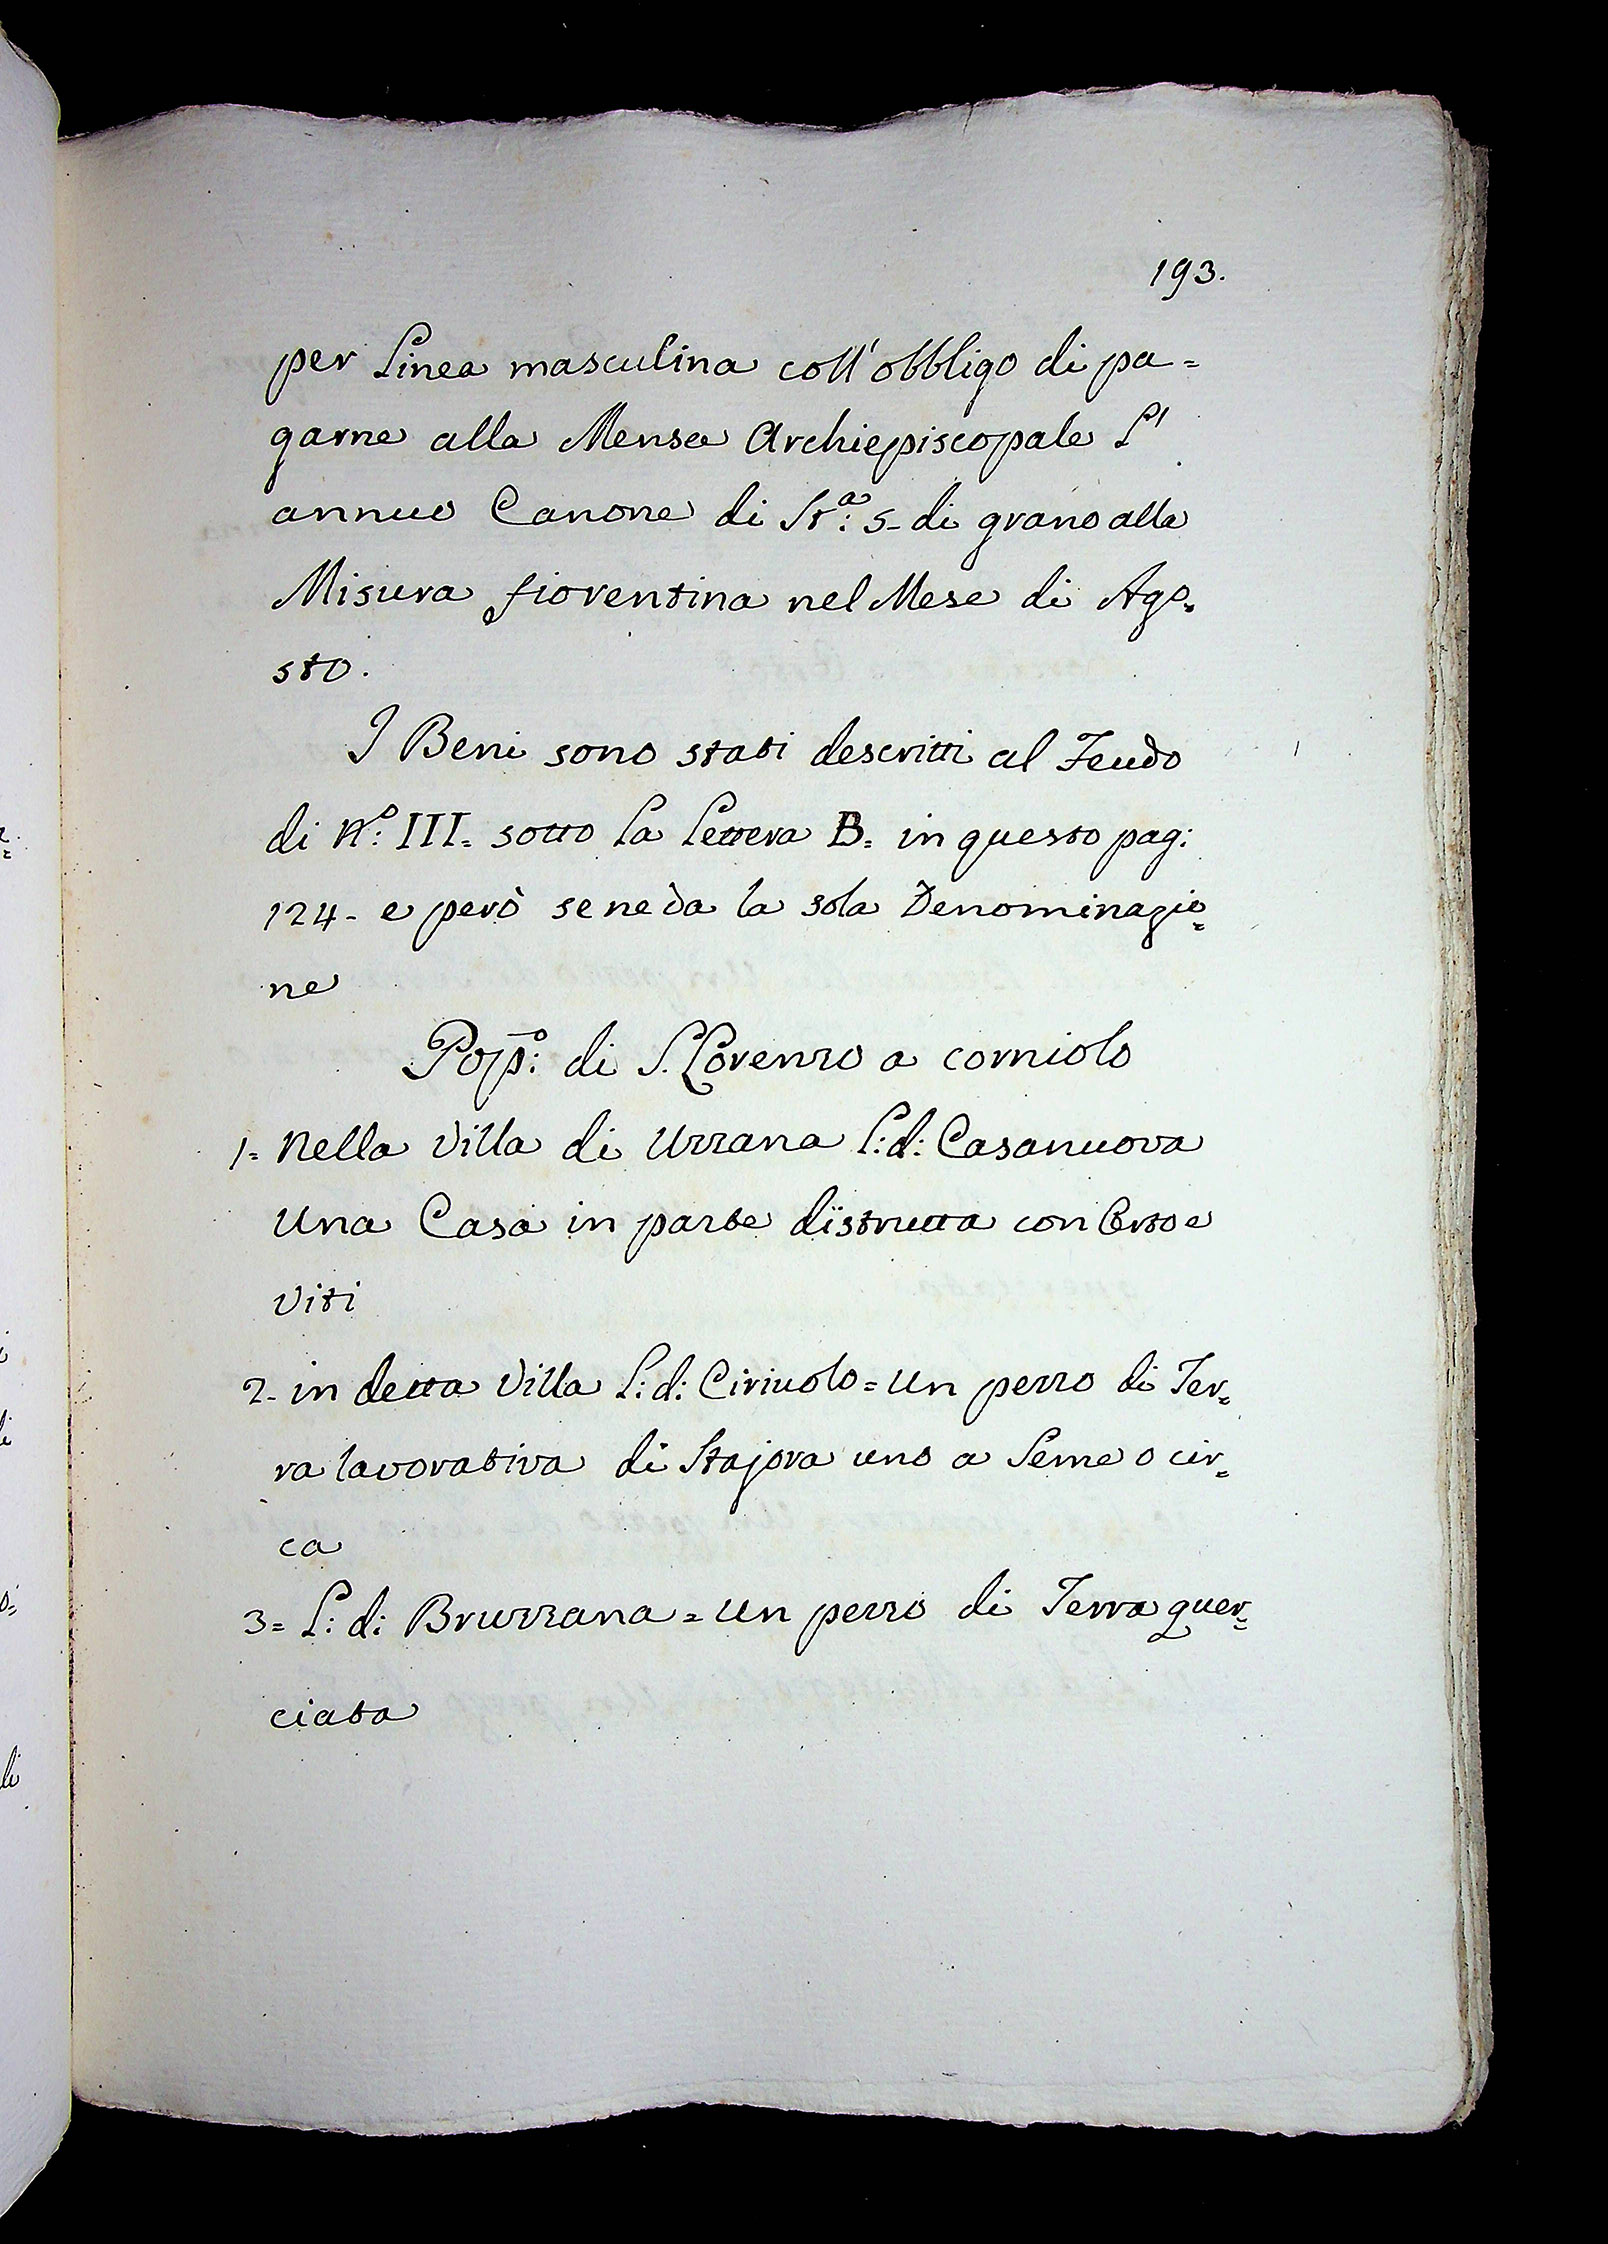 193.
per Linea masculina coll'obbligo di pa=
garne alla Mensa Archiepiscopale L'
annuo Canone di St.ª: 5- di grano alla
Misura fiorentina nel Mese di Ago=
sto.
I Beni sono stati descritti al Feudo
di N.º: III= sotto La Lettera B= in questo pag:
124- e però se ne dà la sola Denominazio=
ne
Pop.º: di S. Lorenzo a corniolo
1= Nella Villa di Uzzana L: d: Casanuova
Una Casa in parte distrutta con Orto e
Viti
2- in detta Villa L: d: Ciriuolo = Un pezzo di Ter=
ra lavorativa di Stajora uno a Seme o cir=
ca
3= L: d: Bruzzana = Un pezzo di Terra quer=
ciata